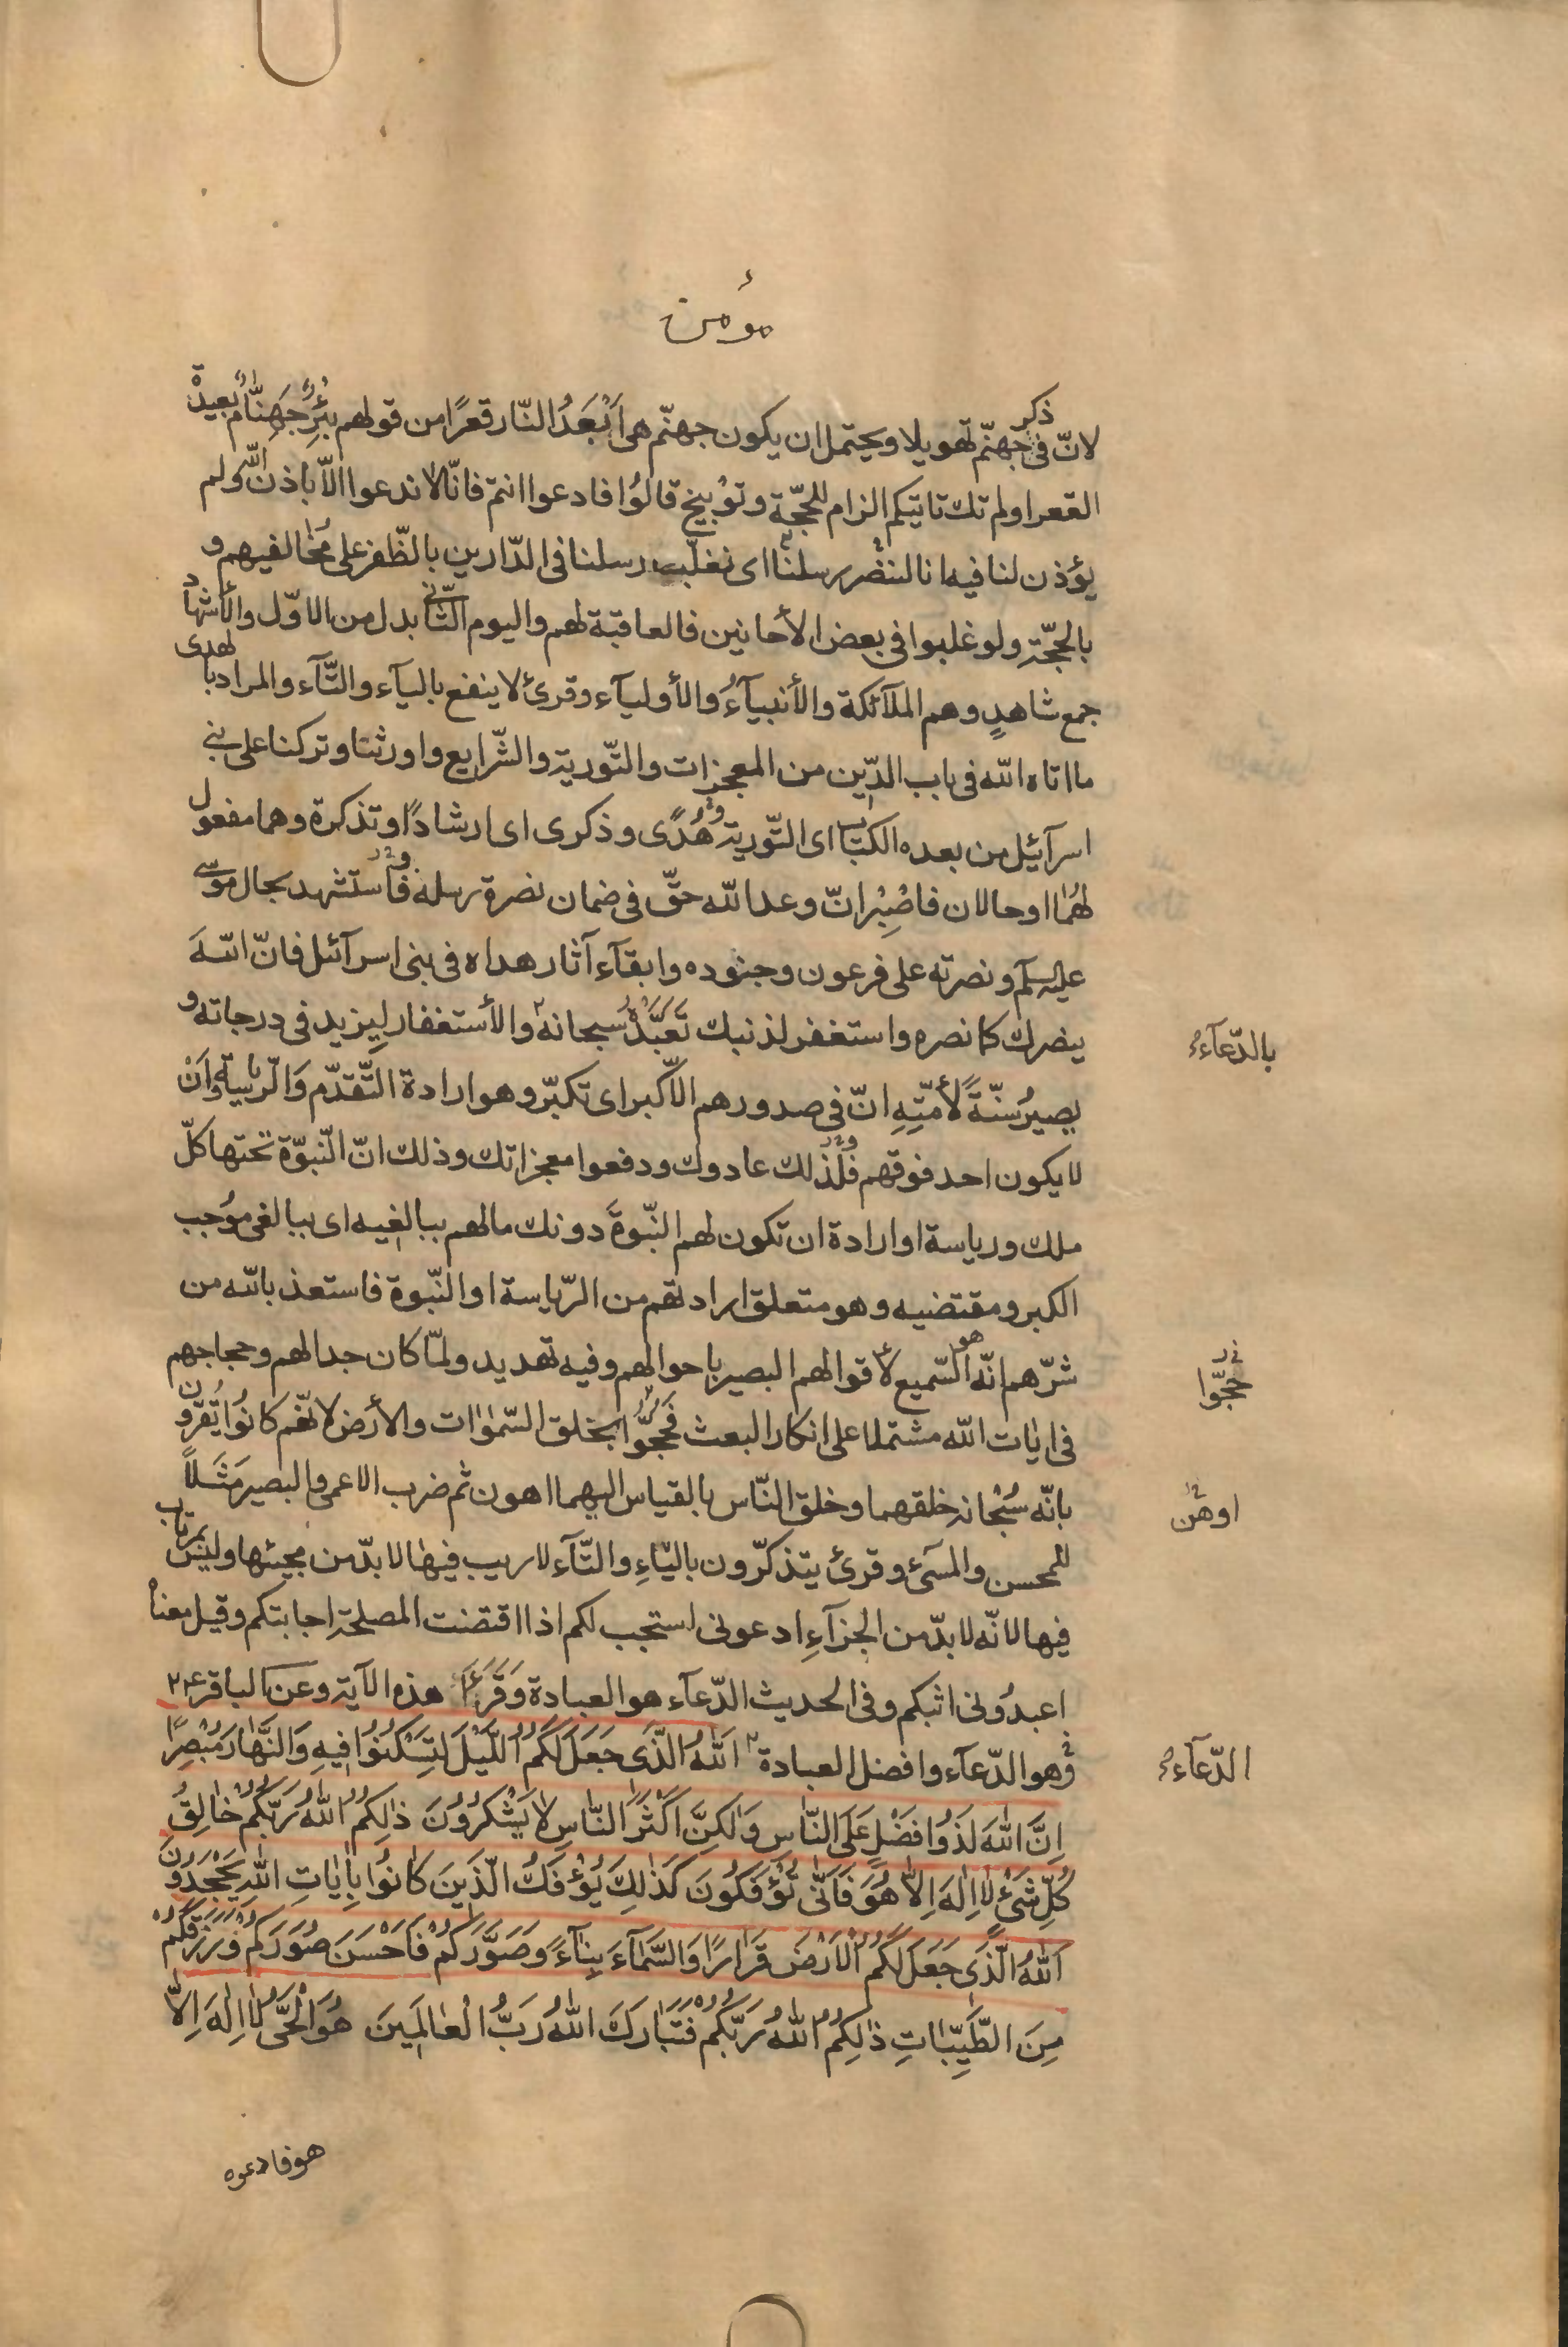 مؤمن
لانّ فى ذكر جهنّم تهويلا ويحتمل ان يكون جهنّم هى اَبْعَدُ النّار قعرًا من قولهم بِئرٌ جَهِنّامٌ بعيدة
القعر اولم تك تاتيكم الزام للحجّة وتوْبيخ قالوُا فادعوا انتم فانّا لا ندعوا الاّ باذن اللّه ولم
يؤذن لنا فيه انا لننصر رسلنا اى نغلّب رسلنا فى الدّارين بالظّفر على مخالفيهم و
بالحجّةِ ولو غلبوا فى بعض الأحانين فالعاقبة لهم واليوم الثّانى بدل من الاوّل والأشهاد
جمع شاهدٍ وهم الملآئكة والأنبيآءُ والأوليآء وقرئ لا ينفع باليآء والتّآء والمراد بالهدى
ما اتاه اللّه فى باب الدّين من المعجزات والتّورية والشّرايع واورثنا وتركنا على بنى
اسرآئيل من بعده الكتاب اى التّورية هُدًى وذكرى اى ارشادًا وتذكرة وهما مفعول
لهُما او حالان فاصْبِرْ انّ وعد اللّه حقّ فى ضمان نصرة رسله فاستشهد بحال موسى
عليه السلام ونصرته على فرعون وجنوده وابقآء آثار هداه فى بنى اسرآئل فانّ اللّهَ
ينصرك كما نصره واستغفر لذنبك تَعَبَّدَهُ سبحانه والأستغفار لِيزيد فى درجاته و
بالدّعآءِ
يصيرُ سُنّةً لأمّتِهِ انّ فى صدورهم الاّ كبر اى تكبّر وهو ارادة التّقدّم وَالرّياسَةِ وَاَنْ
لا يكون احد فوقهم فلذلك عادوك ودفعوا معجزاتك وذلك انّ النّبوّة تحتها كلّ
ملك ورياسة او ارادة ان تكون لهم النّبوّةَ دونك مالهم ببالغيه اى ببالغى موُجب
الكبر ومقتضيه وهو متعلق ارادتهم من الرّياسة او النّبوة فاستعذ باللّه من
شرّهم انّه هو السّميع لأقوالهم البصير باحوالهم وفيه تهديد ولمّا كان جدالهم وحجاجهم
حجّوا
فى ايات اللّه مشتملا على انكار البعث فَحجُّوا بخلق السّمٰوات والأرض لانّهم كانوُا يُقرّون
بانّه سُبْحانه خلقهما وخلق النّاس بالقياس اليهما اهون ثم ضرب الاعمى والبصير مَثَلاً
اوهن
للمحسن والمسئ وقرئ يتذكّرون باليآءِ والتّآء لا ريب فيها لا بدّ من مجيئها وليس بمرتاب
فيها لانّه لا بدّ من الجزآءِ ادعونى استجب لكم اذا اقتضت المصلحة اجابتكم وقيل معناه
اعبدُونى اثبكم وفى الحديث الدّعآء هو العبادة وَقَرَءَ هذه الآية وعن الباقر ع
وهو الدّعآء وافضل العبادة اَللّٰهُ الَّذى جَعَلَ لَكُمُ اللَّيْلَ لِتَسْكُنُوا فيهِ وَالنَّهارَ مُبْصِرًا
الدّعآءِ
اِنَّ اللّٰهَ لَذُو فَضْلٍ عَلَى النّاسِ وَلٰكِنَّ اَكْثَرَ النّاسِ لا يَشْكُرُونَ ذٰلِكُمُ اللّٰهُ رَبُّكُمْ خالِقُ
كُلِّ شَئٍ لا اِلٰهَ اِلاّ هُوَ فَاَنّٰى تُؤْفَكُونَ كَذٰلِكَ يُؤْفَكُ الَّذينَ كانُوا بِاٰياتِ اللّٰهِ يَجْحَدُونَ
اَللّٰهُ الَّذى جَعَلَ لَكُمُ الْاَرْضَ قَرارًا وَالسَّمآءَ بِنآءً وَصَوَّرَكُمْ فَاَحْسَنَ صُوَرَكُمْ وَرَزَقَكُمْ
مِنَ الطَّيِّباتِ ذٰلِكُمُ اللّٰهُ رَبُّكُمْ فَتَبارَكَ اللّٰهُ رَبُّ الْعالَمينَ هُوَ الْحَىُّ لا اِلٰهَ اِلاّ
هو فادعوه